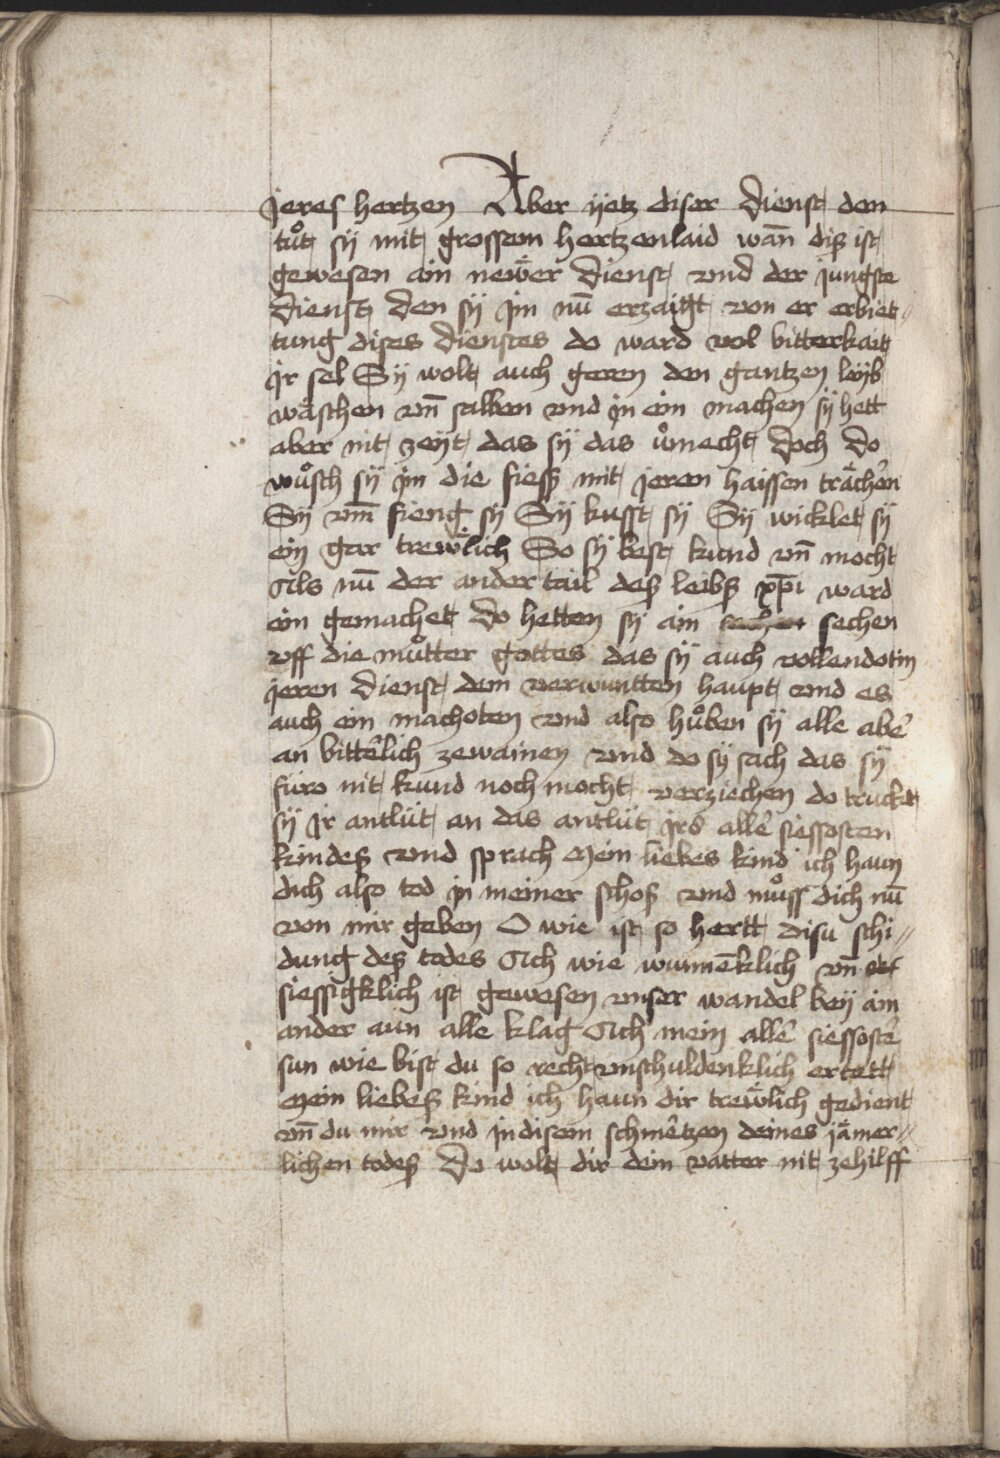 jeres hertzen Aber yetz diser dienst den
tuͦt sÿ mit grossem hertzenlaid wan̄ diß ist
gewesen ain neẅer dienst vnd der jungste
dienst den sÿ jm nū erzaigt von er erbiet〃
tung dises dienstes do ward vol bitterkait
jr sel Sÿ wolt auch geren den gantzen leÿb
wäschen vn̄ salben vnd jn ein machen sÿ hett
aber nit zeÿt das sÿ das uͦmecht doch do
wuͦsch sÿ jm die fiess mit jeren haissen trächen̄
Sÿ vm̄ fieng sÿ Sÿ kusst sÿ Sÿ wicklet sÿ
ein gar treẅlich So sÿ best kund vn̄ mocht
Als nū der ander tail deß leibß xp̄i ward
ein gemachet do hetten sÿ ain sechen
vff die muͦtter gottes das sÿ auch vollendotin
jeren dienst dem verwuntten haupt vnd es
auch ein machoten vnd also huͦben sÿ alle abē
an bittēlich zewainen vnd do sÿ sach das sÿ
füro nit kund noch mocht verziechen do truckt
sÿ jr antlüt an das antlüt jrs allē siessosten
kindeß vnd sprach Mein liebes kind ich haun
dich also tod jn meiner schoß vnd muͦss dich nū
von mir geben O wie ist so hertt disu schi〃
dung deß todes Ach wie wunnēklich vn̄
siessigklich ist gewesen vnser wandel beÿ ain
ander aun alle klag Ach mein allē siessostē
sun wie bist du so recht vnschuldenklich ertett
Mein liebeß kind ich haun dir treẅlich gedient
vn̄ du mir vnd jn disem schmētzen deines jämer〃
lichen todeß Do wolt dir dein vatter nit zehilff